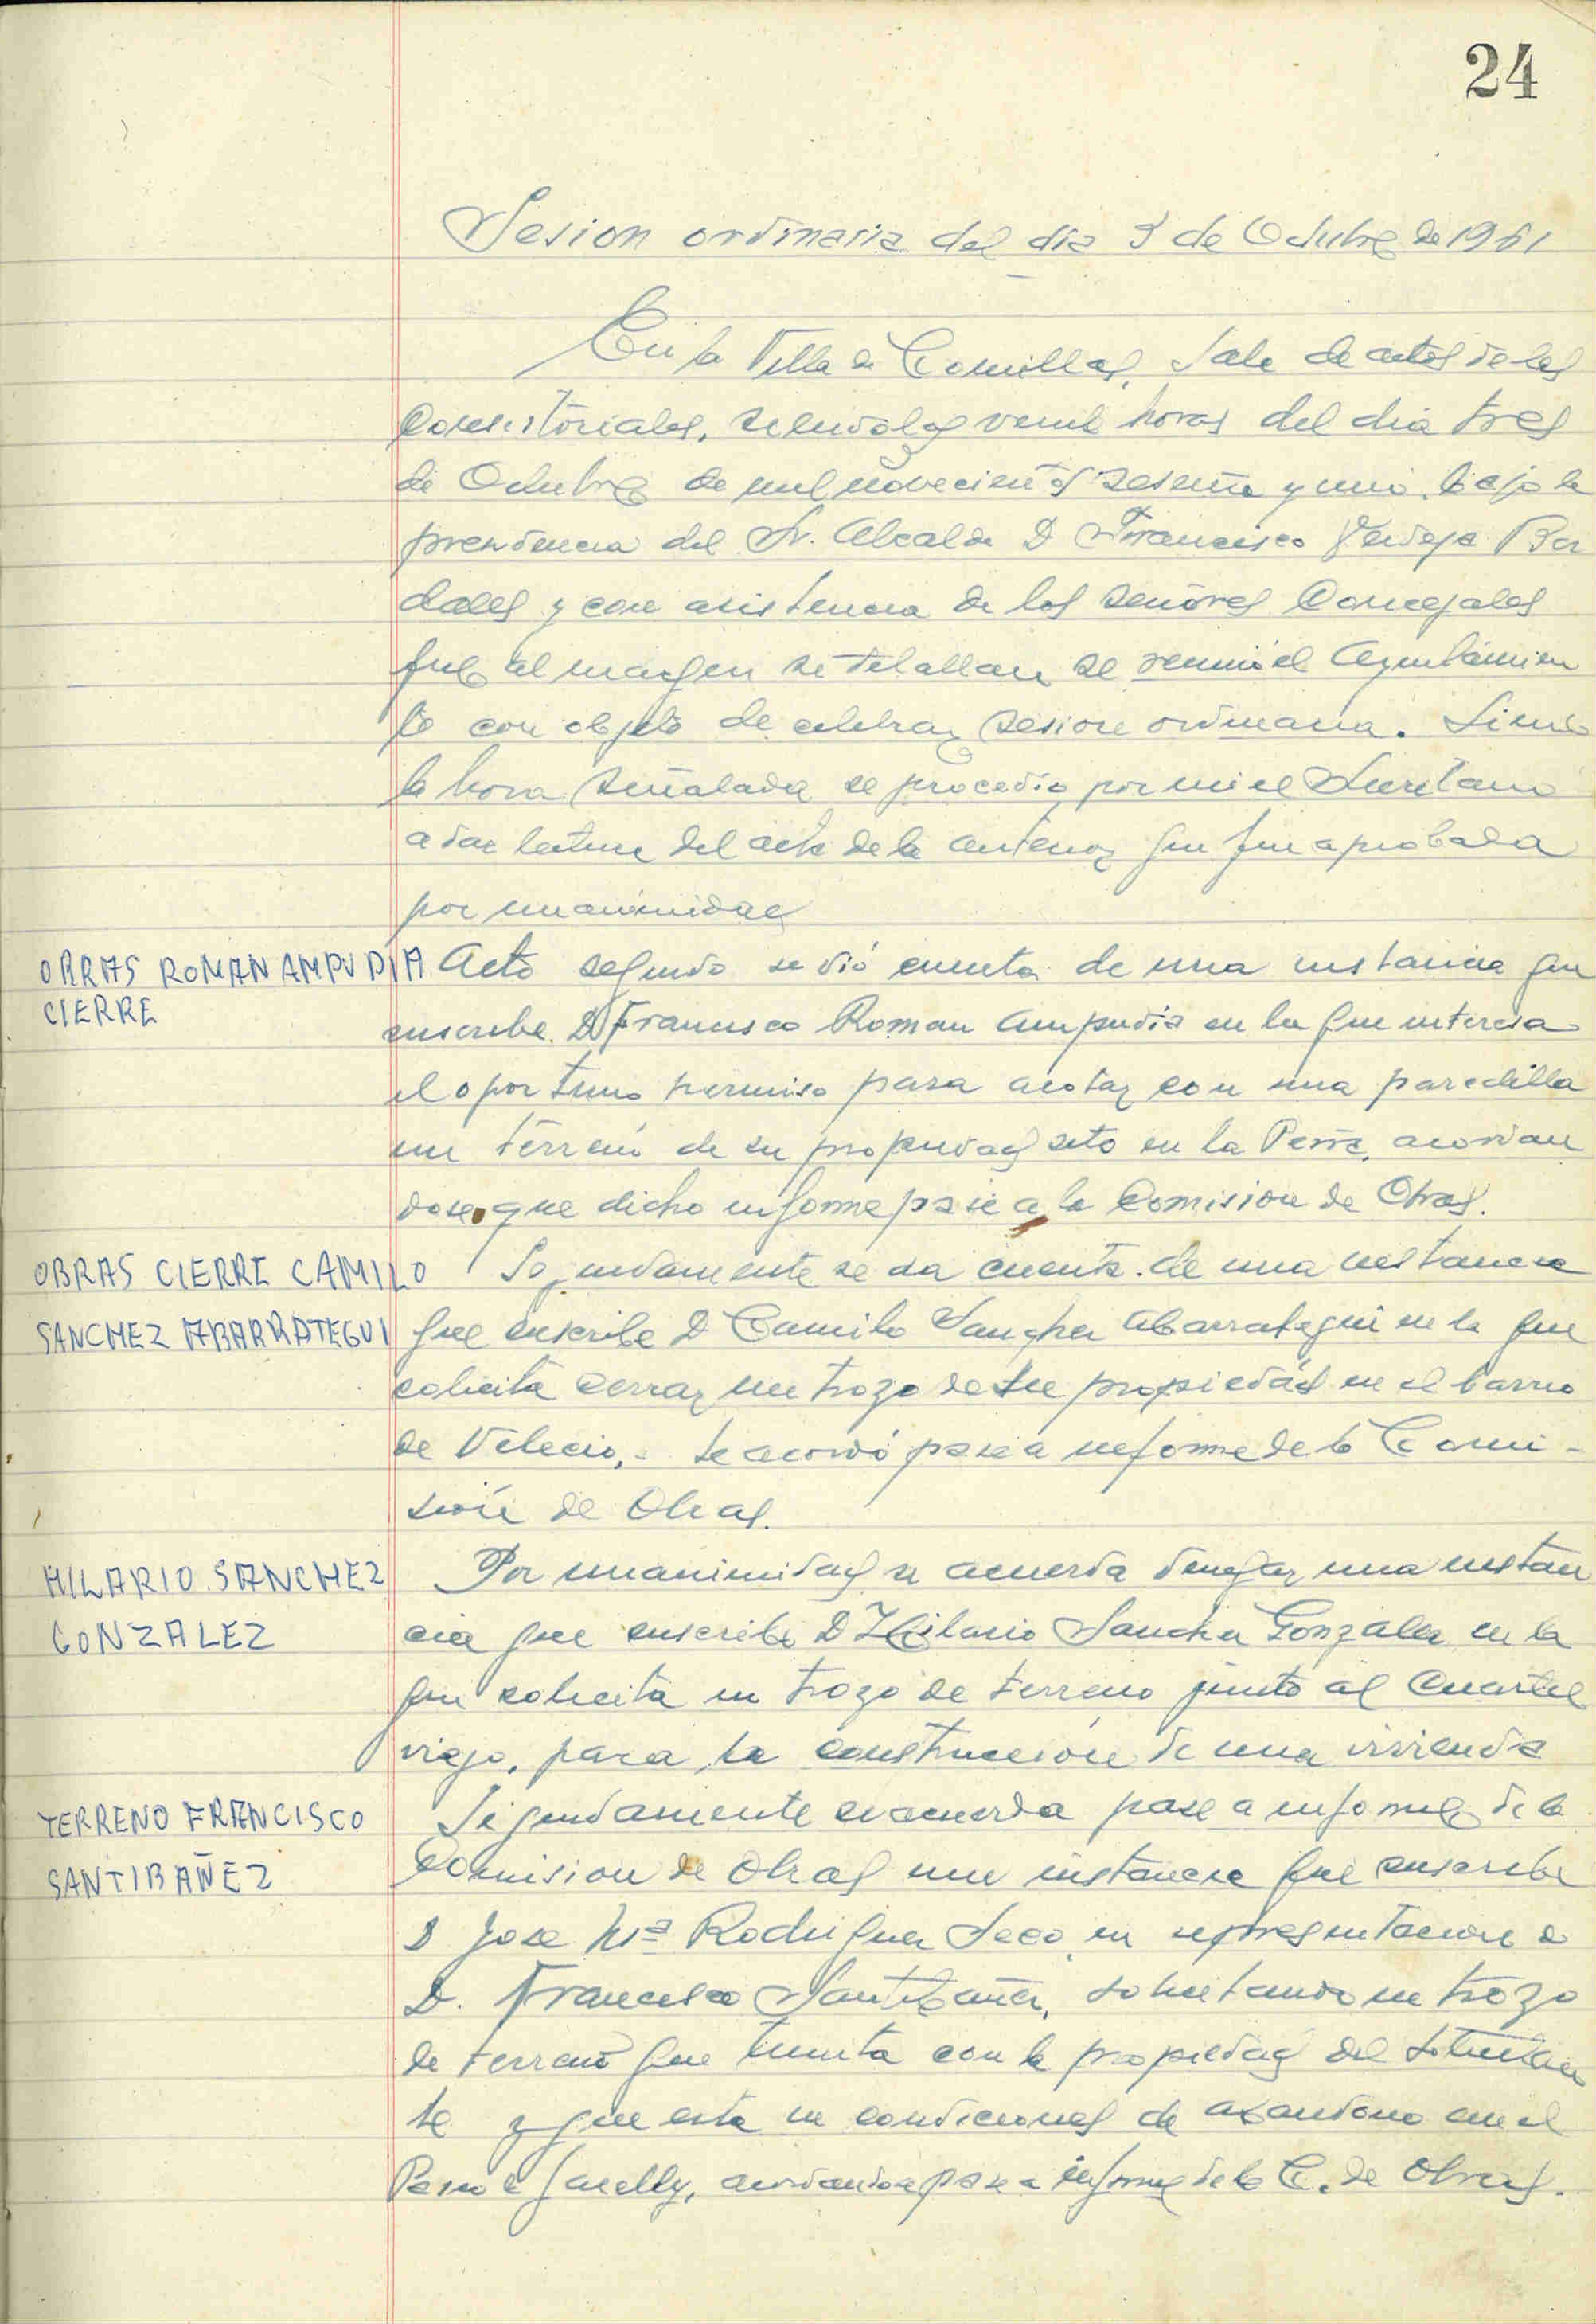 24
Sesion ordinaria del dia 3 de Octubre de 1961
En la Villa de Comillas, Sala de actos de las
Consistoriales, siendo las veinte horas del dia tres
de Octubre de mil novecientos sesenta y uno, bajo la
presidencia del Sr. Alcalde D Francisco
dales y con asistencia de los señores Concejales
que al margen se detallan se reunio el Ayuntamien
to con objeto de celebrar sesion ordinaria. Siendo
la hora señalada se procedio por mi el Secretario
a dar lectura del acta de la anterior que fue aprobada
por unanimidad
OBRAS ROMAN AMPUDIA
CIERRE
Acto seguido se dió cuenta de una instancia que
suscribe D Francisco Roman Ampudia en la que interesa
el oportuno permiso para acotar con una paredilla
un terreno de su propiedad sito en la Peña, acordan
dose que dicho informe pase a la Comision de Obras.
OBRAS CIERRE CAMILO
SANCHEZ ABARRATEGUI
Segundamente se da cuenta de una instancia
que suscribe D Camilo Sanchez Abarrategui en la que
solicita cerrar un trozo de su propiedad en el barrio
de Velecio,- se acordó pase a informe de la Comi-
sión de Obras.
HILARIO SANCHEZ
GONZALEZ
Por unanimidad se acuerda denegar una instan
cia que suscribe D Hilario Sanchez Gonzalez en la
que solicita un trozo de terreno junto al Cuartel
viejo, para la construcción de una vivienda
TERRENO FRANCISCO
SANTIBAÑEZ
Segundamente se acuerda pase a informe de la
Comision de Obras una instancia que suscribe
D Jose Mª Rodriguez Seco en representacion de
D. Francisco Santibañez, solicitando un trozo
de terreno que limita con la propiedad del solicitan
te y que esta en condiciones de abandono en el
Paseo de Garelly, acordandose pase a informe de la C. de Obras.